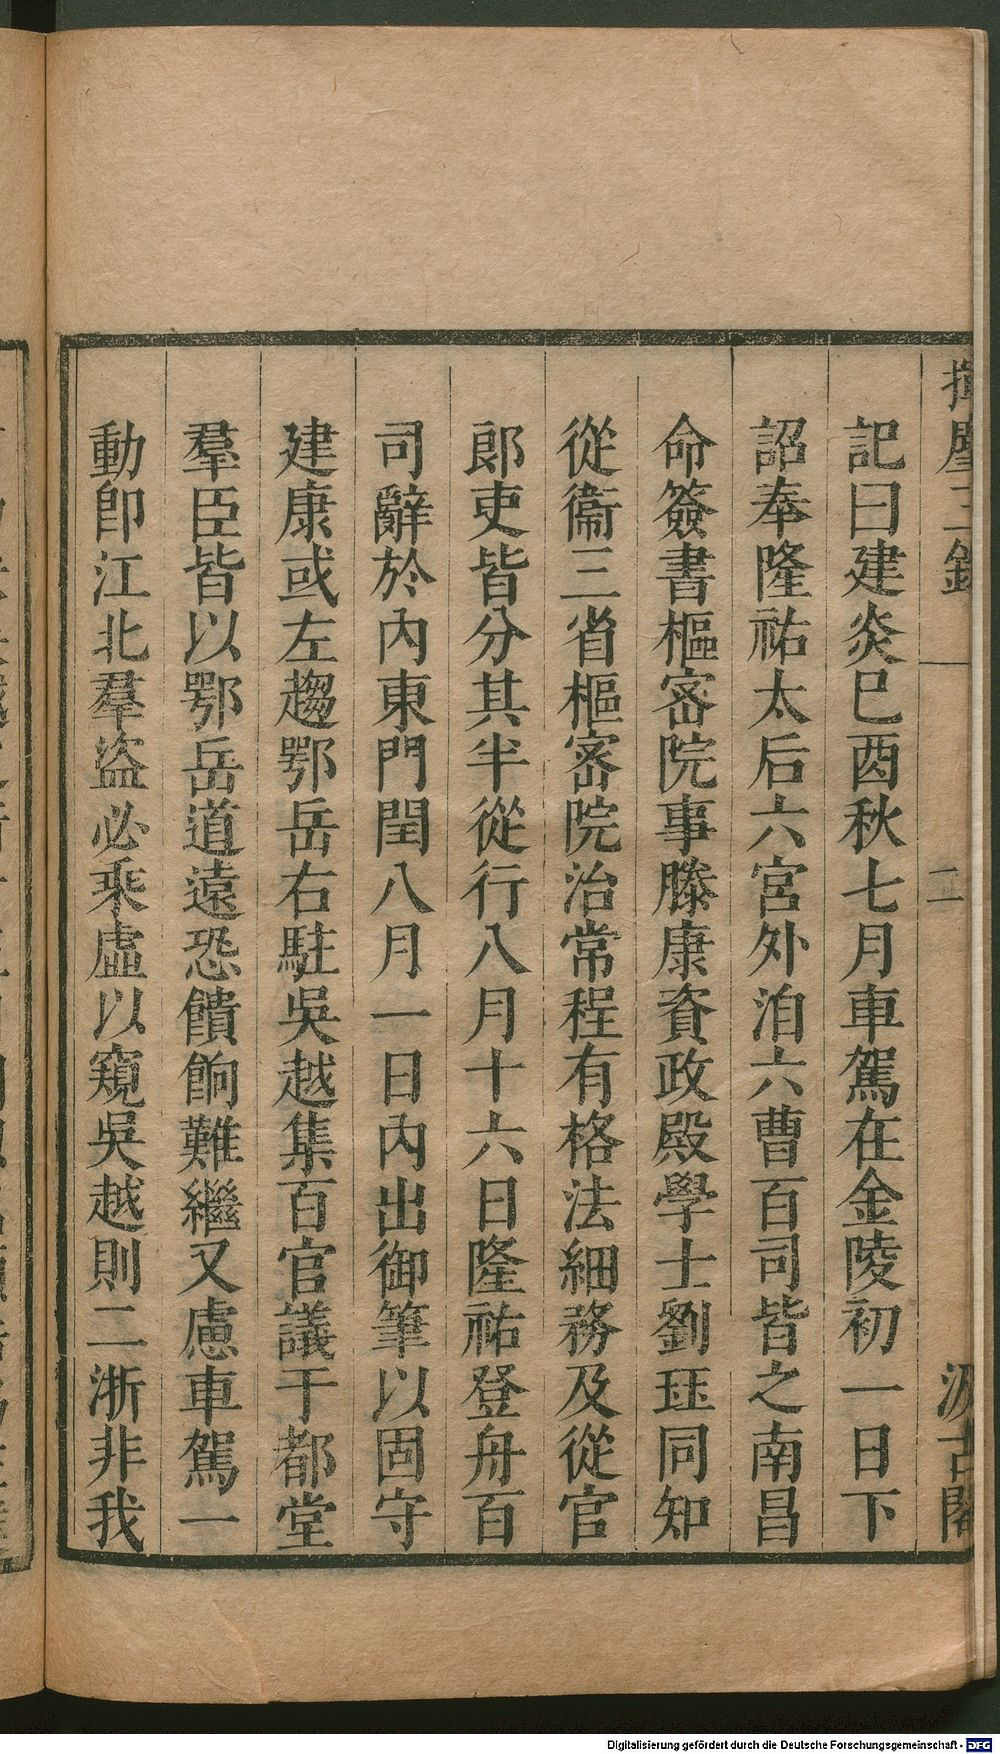 揮麈三錄
二
汲古閣
記曰建炎巳酉秋七月車駕在金陵初一日下
詔奉隆祐太后六宮外洎六曹百司皆之南昌
命簽書樞密院事滕康資政殿學士劉珏同知
從衞三省樞密院治常程有格法細務及從官
郎吏皆分其半從行八月十六日隆祐登舟百
司辭於內東門閏八月一日內出御筆以固守
建康或左趨鄂岳右駐吳越集百官議于都堂
羣臣皆以鄂岳道遠恐饋餉難繼又慮車駕一
動卽江北羣盜必乘虛以窺吳越則二浙非我
Digitalisierung gefördert durch die Deutsche Forschungsgemeinschaft - DFG